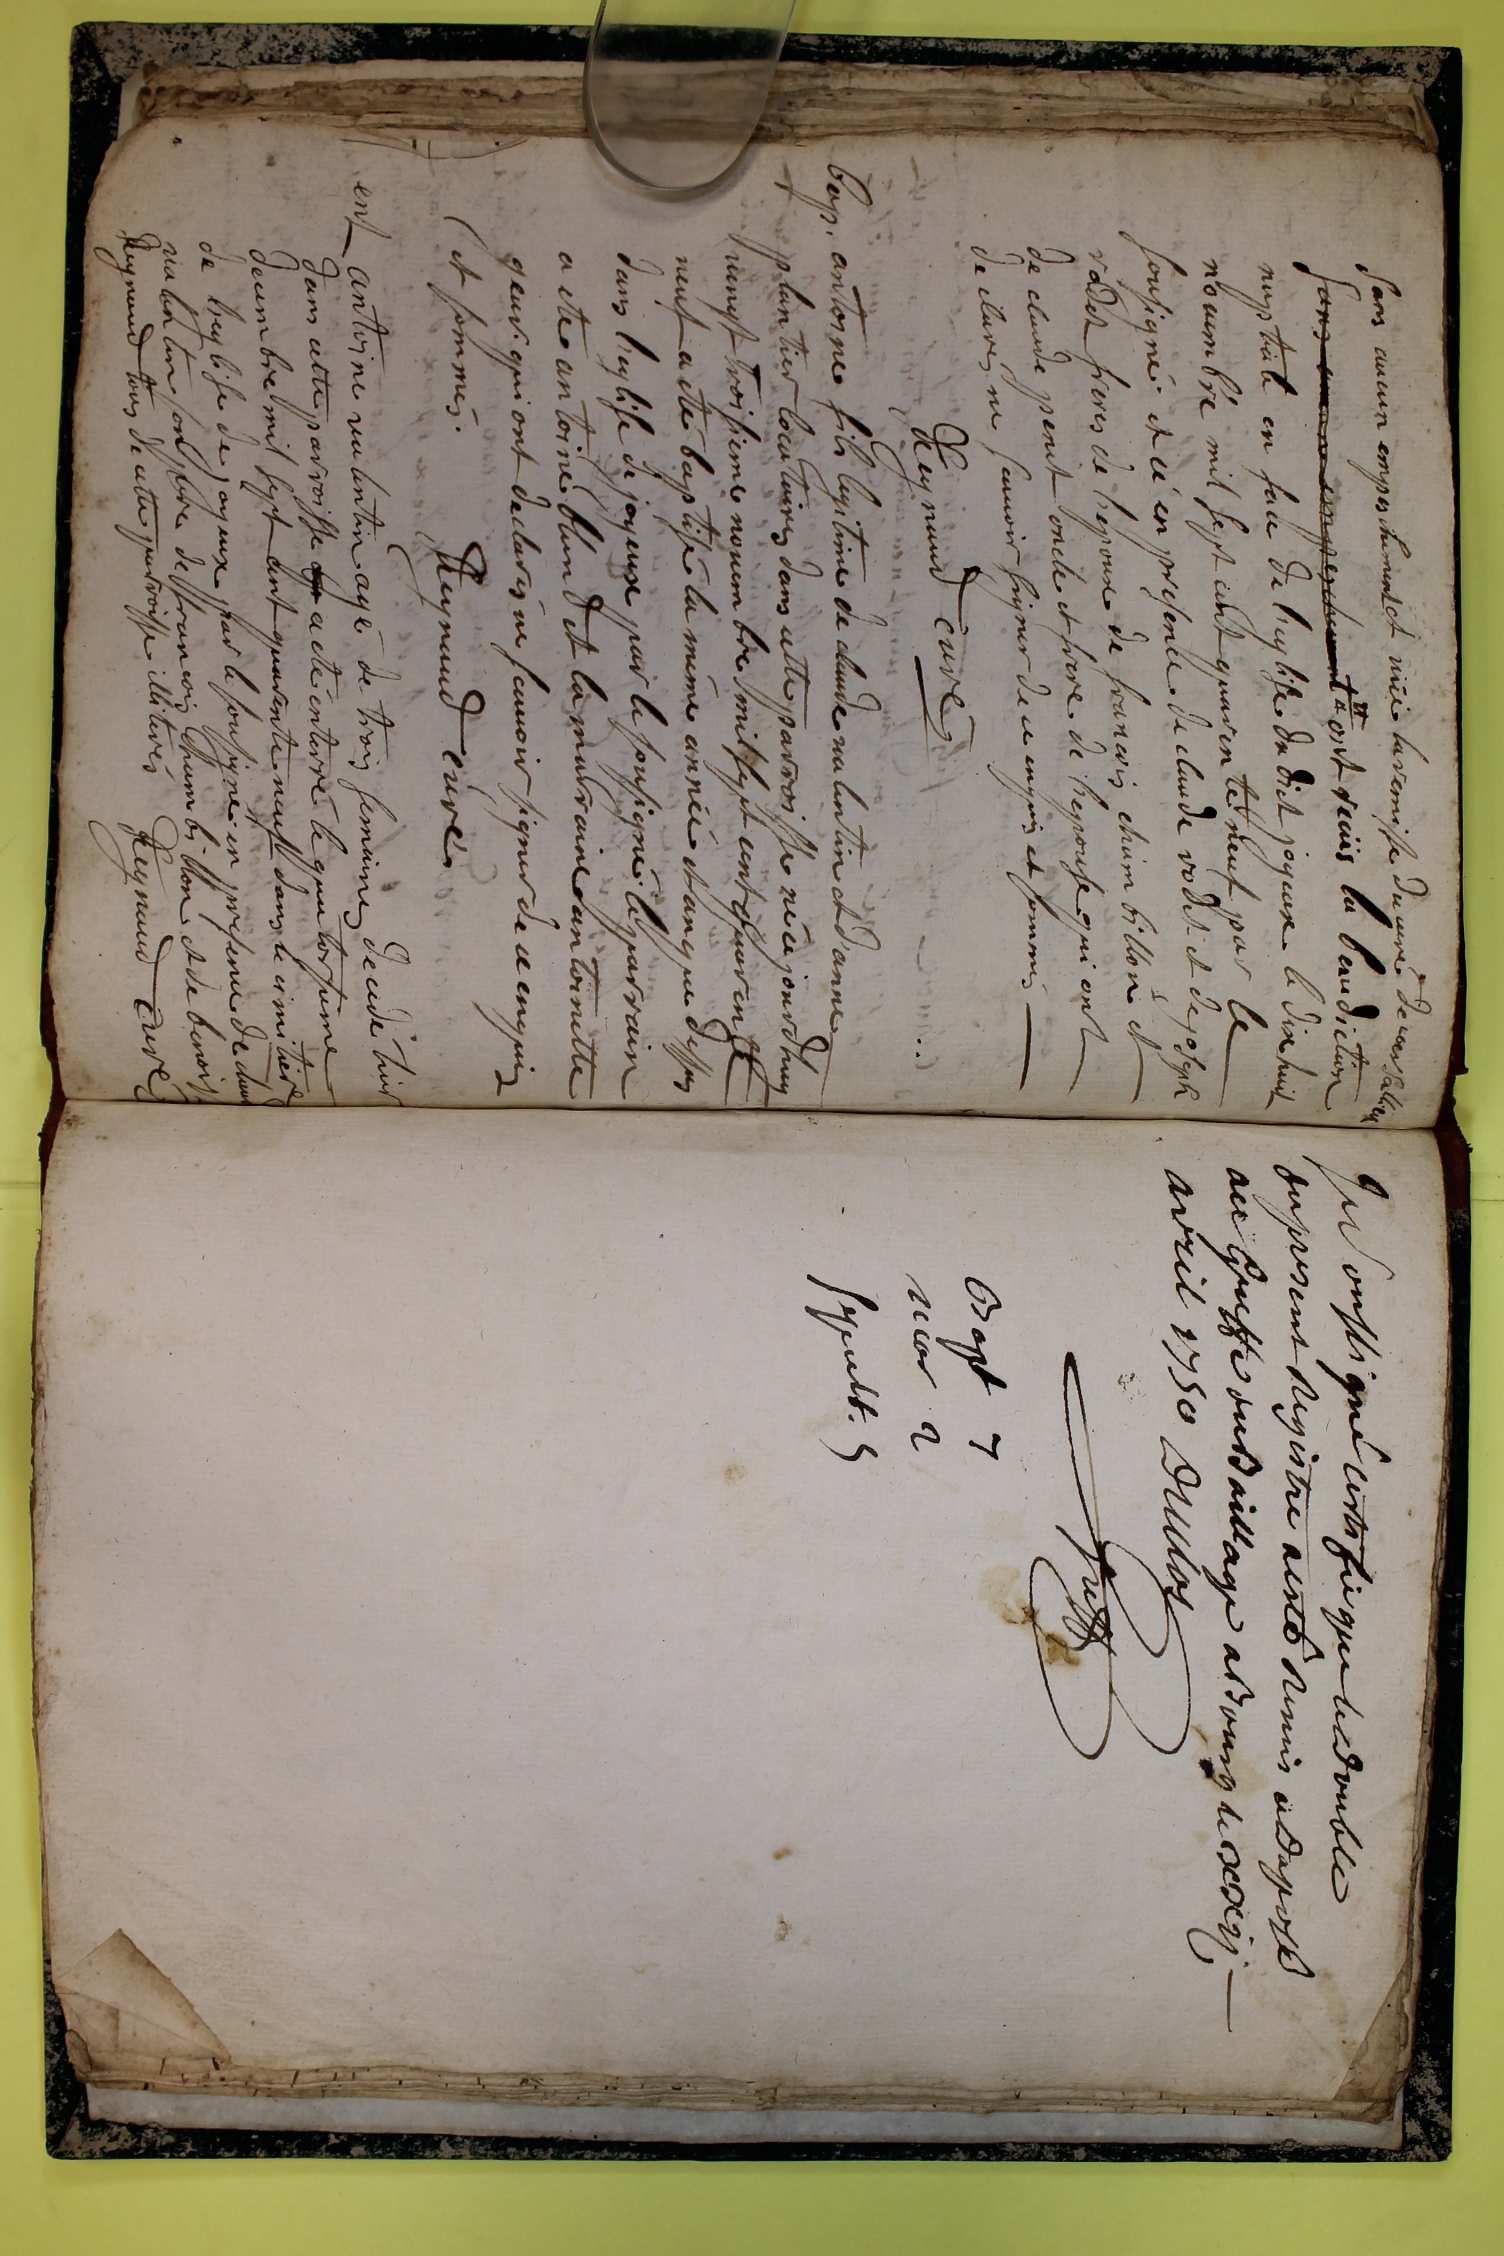 Sans aucun empeschement et vüe la remisse du curé de versallieu
Sans aucun empeschement ont recüs la benediction
nuptiale en face de l'eglise du dit joyeux le dixhuit
novembre mil sept cent quarente neuf par le
sousigné et ce en presence de claude rodet et de joseph
rodet freres de l'epouse de francois chambillon et
de claude perit oncle et frere de l'epouse qui ont
declarés ne scavoir signer de ce enquis et sommés
Reynaud curé
bap. antoine fils legitime de claude valentin et d'anne
plantier locataires dans cette parroisse né ce jourdhuy
vingt troisieme novembre mil sept cent quarente
neuf a été baptisé la meme année et an que dessus
dans l'eglise de joyeux par le sousigné le parrain
a été antoine blund et la marraine antoinette
qui ont declarés ne scavoir signer de ce enquis
et sommés.
Reynaud curé
ent antoine valentin agé de trois semaines decedé hier
dans cette parroisse a été enterré le quatorsieme
decembre mil sept cent quarente neuf dans le cimitiere
de l'eglise de joyeux par le sousigné en presence de
valentin son pere de francois chambillon et de benoit
Reynaud tous de cette parroisse illiterés Reynaud curé
Je soussigné certifie que le double
du present Registre a esté Remis et déposé
au Greffe du Bailliage a Bourg le
avril 1750 Duclos
Greff
Bapt 7
mar 2
sepult. 5